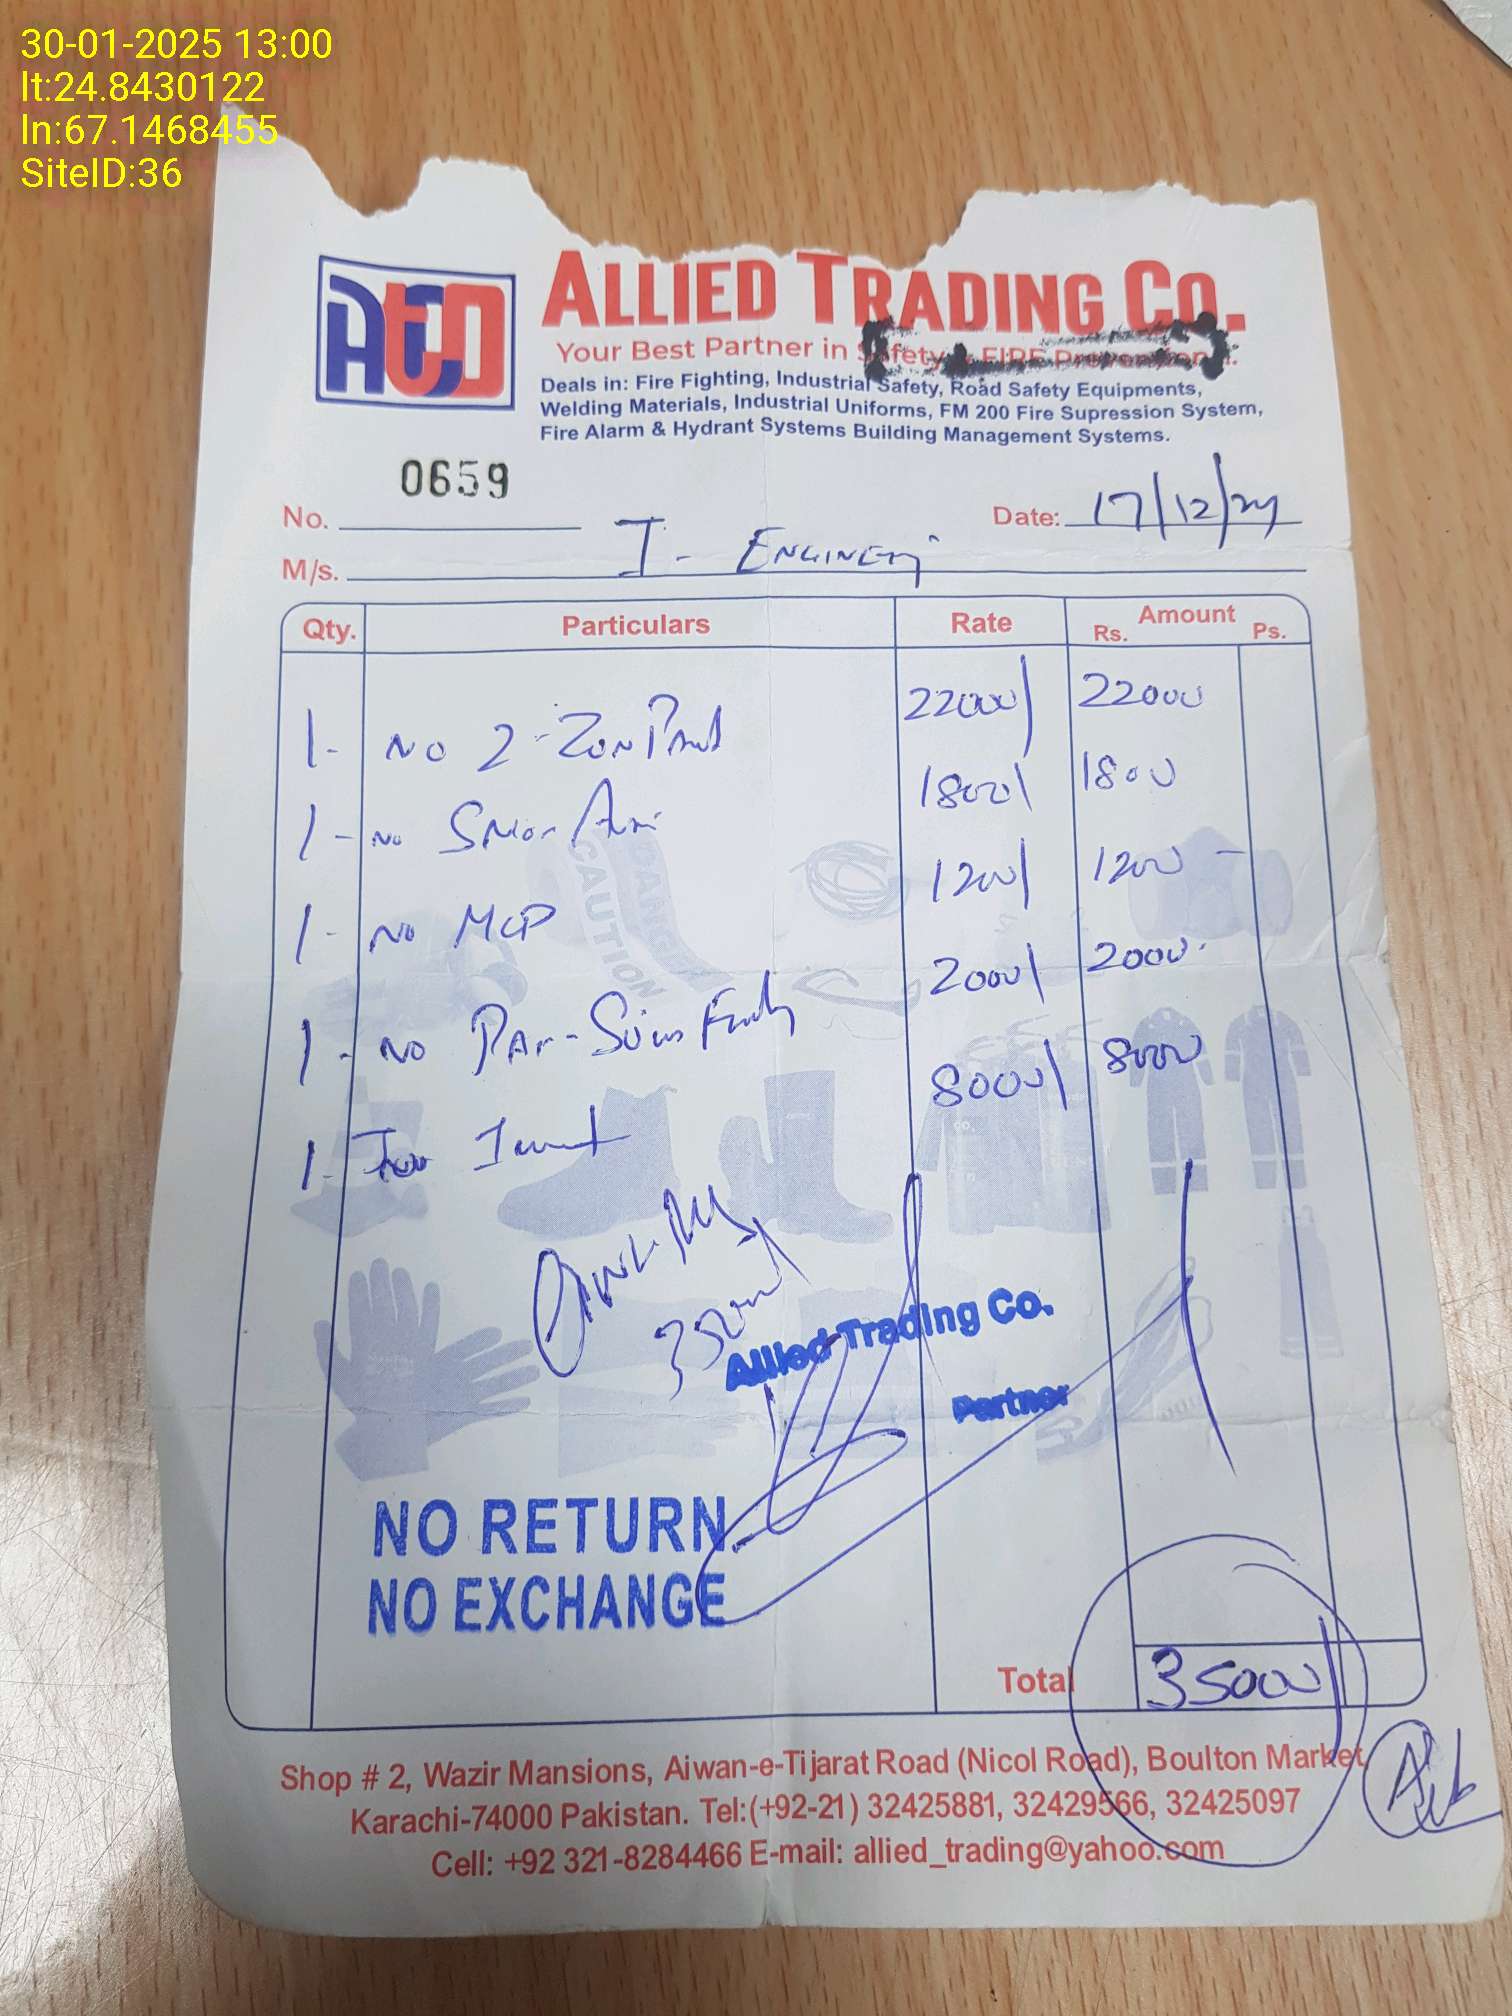 30-01-2025 13:00
lt:24.8430122
ln:67.1468455
SiteID:36
ATCO
ALLIED TRADING CO.
Your Best Partner in Safety & FIRE Prevention.
Deals in: Fire Fighting, Industrial Safety, Road Safety Equipments,
Welding Materials, Industrial Uniforms, FM 200 Fire Supression System,
Fire Alarm & Hydrant Systems Building Management Systems.
0659
No. Date: 17/12/24
M/s. I-
Qty. Particulars Rate Amount
Rs. Ps.
1- No 2-Zon 22000/ 22000
1- No 1800/ 1800
1- No MCP 1200/ 1200 -
1- No 2000/ 2000
1- 8000/ 8000
CAUTION
35000/
Allied Trading Co.
Partner
NO RETURN
NO EXCHANGE
Total 35000/
Shop # 2, Wazir Mansions, Aiwan-e-Tijarat Road (Nicol Road), Boulton Market
Karachi-74000 Pakistan. Tel:(+92-21) 32425881, 32429566, 32425097
Cell: +92 321-8284466 E-mail: allied_trading@yahoo.com